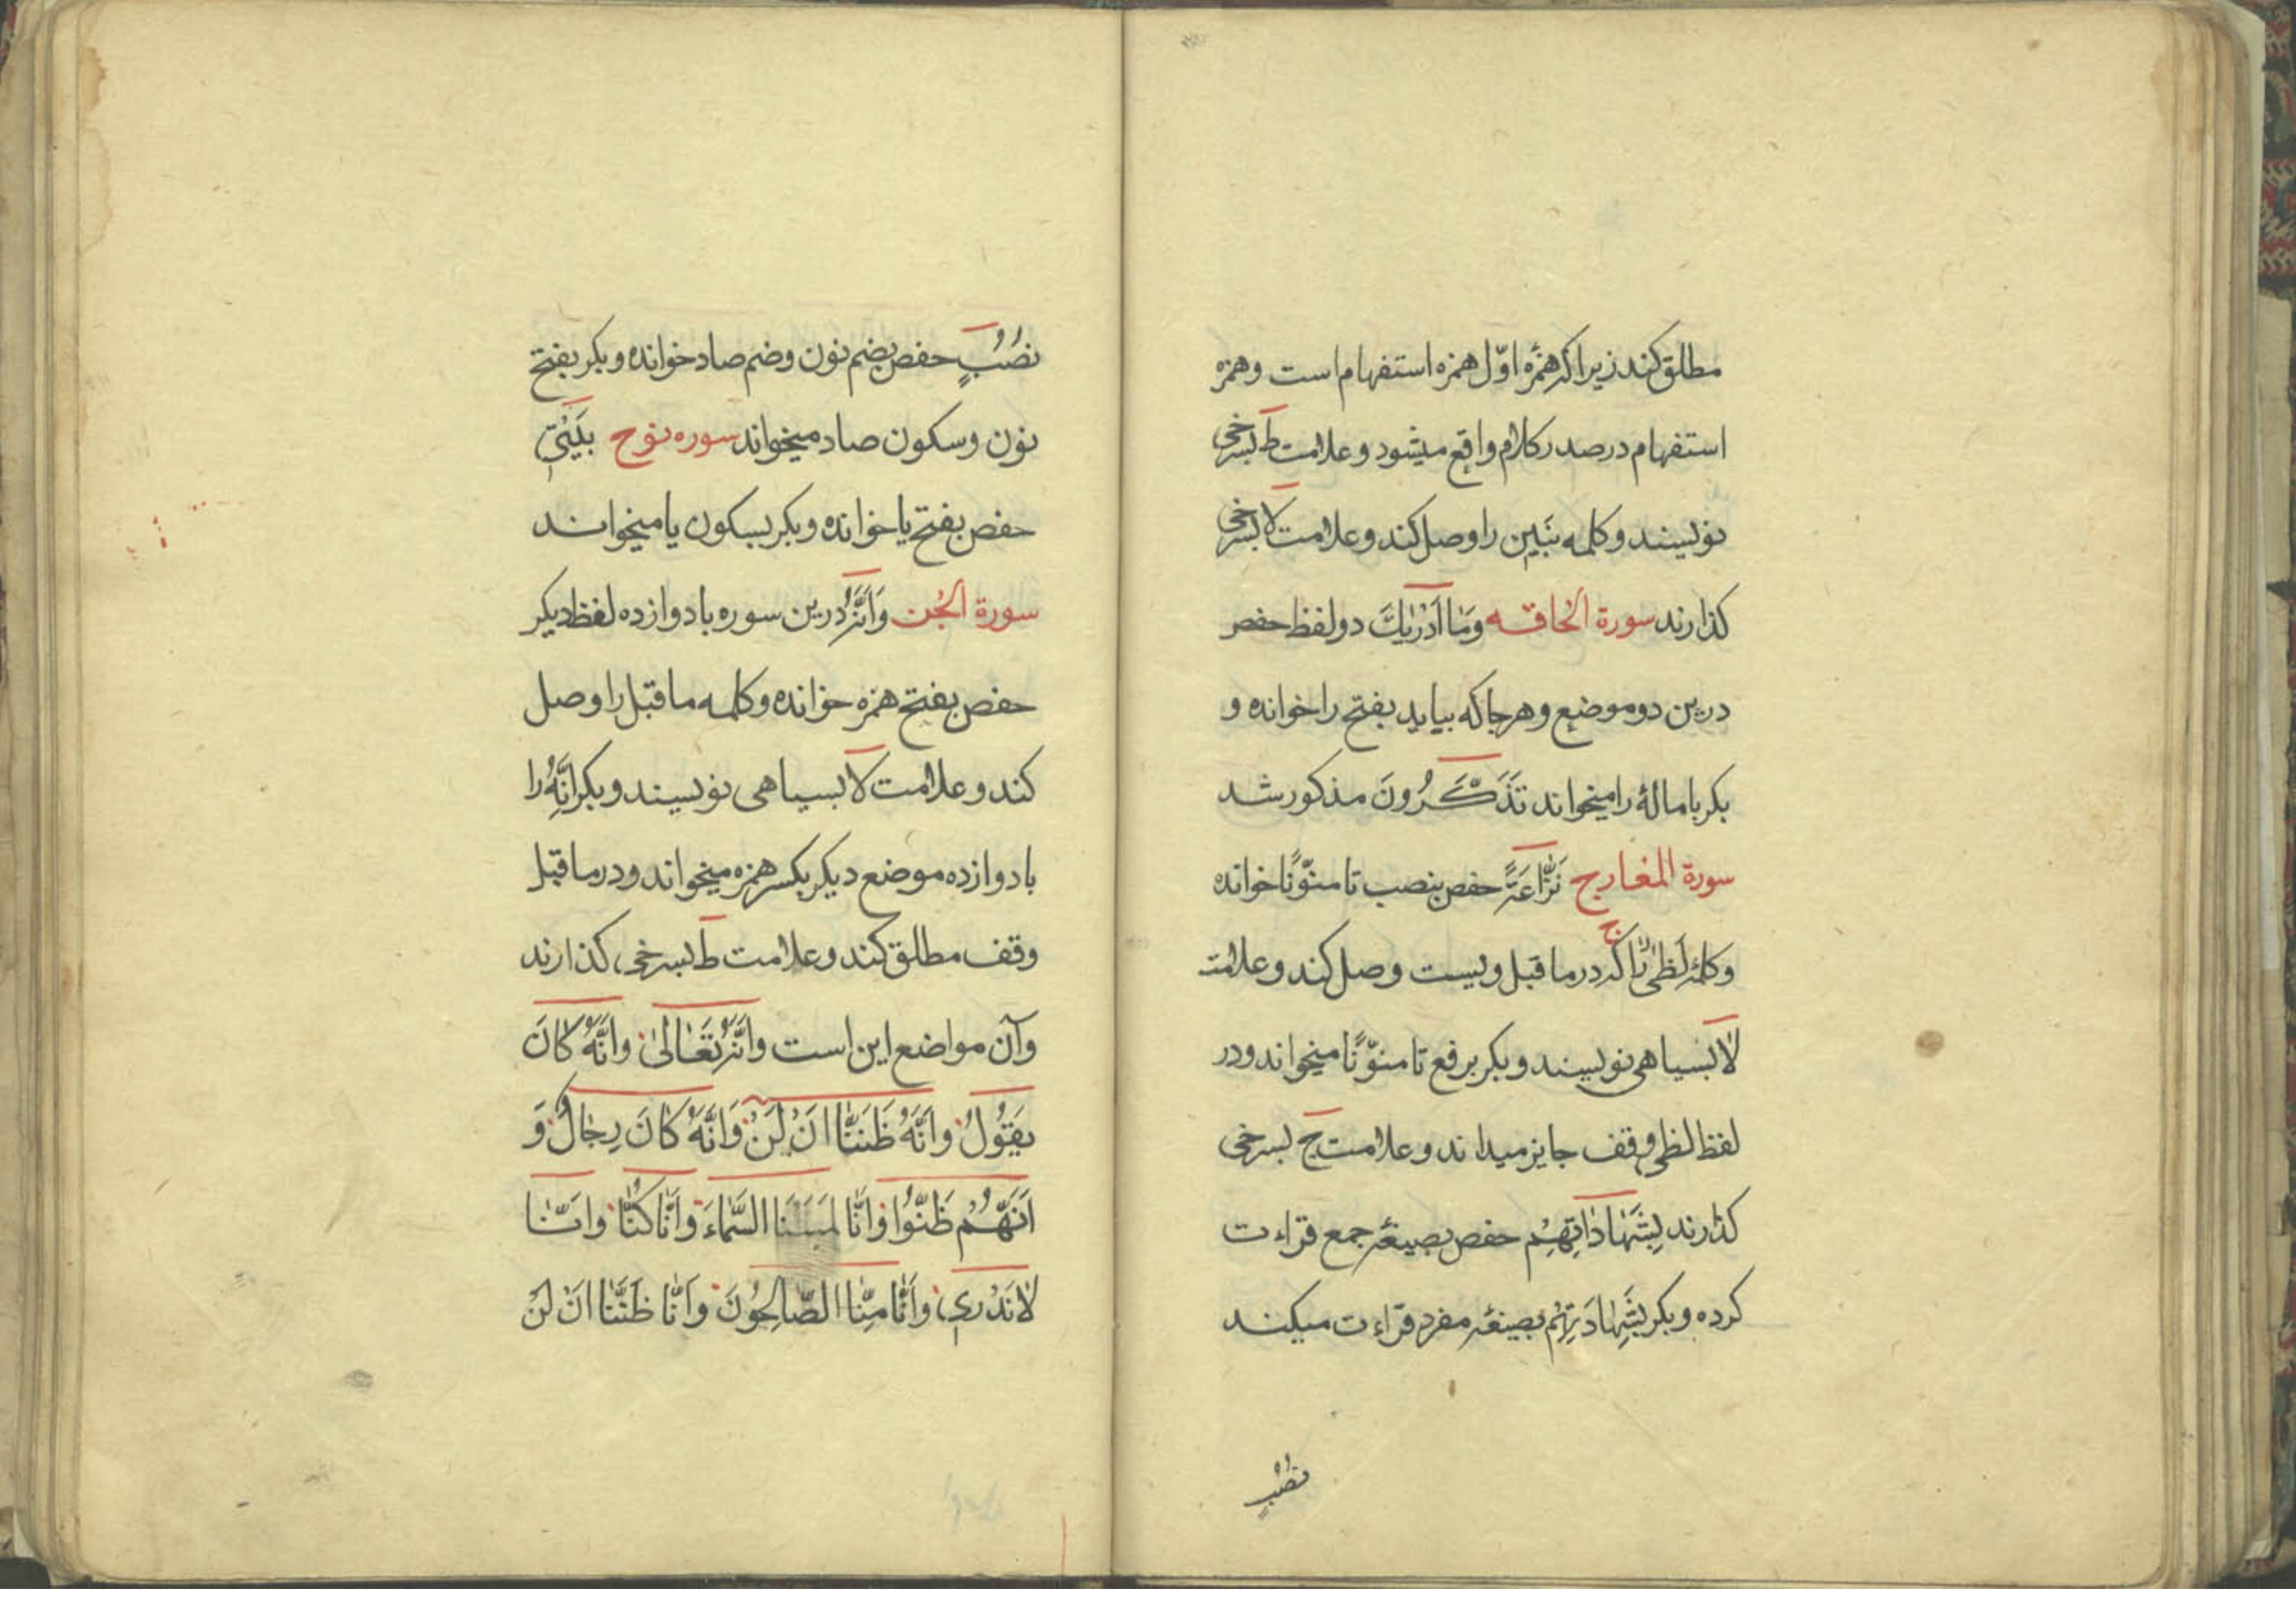 مطلق کند زیرا که همزهٔ اوّل همزه استفهام است و همزه
استفهام در صدر کلام واقع میشود و علامت ط بسرخی
نویسند و کلمه بَنین را وصل کند و علامت لا بسرخی
کذارند سورة الحاقه وَمَا اَدْرٰیكَ دو لفظ حفص
درین دو موضع و هر جا که بیاید بفتح را خوانده و
بکر باماله را میخواند تَذَكَّرُونَ مذکور شد
سورة المعارج نَزَّاعَةً حفص بنصب تا منوّنًا خوانده
و کلمهٔ لَظٰی را که در ما قبل ویست وصل کند و علامت
لا بسیاهی نویسند و بکر برفع تا منوّنًا میخواند و در
لفظ لظی وقف جایز میداند و علامت ج بسرخی
کذارند بِشَهَادَاتِهِمْ حفص بصیغهٔ جمع قراءت
کرده و بکر بِشَهَادَتِهِمْ بصیغهٔ مفرد قراءت میکند
نصُبٍ
نُصُبٍ حفص بضم نون و ضم صاد خوانده و بکر بفتح
نون و سکون صاد میخواند سوره نوح بَیْتِیَ
حفص بفتح یا خوانده و بکر بسکون یا میخواند
سورة الجن وَاَنَّهُ درین سوره با دوازده لفظ دیکر
حفص بفتح همزه خوانده و کلمه ما قبل را وصل
کند و علامت لا بسیاهی نویسند و بکر اِنَّهُ را
با دوازده موضع دیکر بکسر همزه میخواند و در ما قبل
وقف مطلق کند و علامت ط بسرخی کذارند
و آن مواضع این است وَاَنَّهُ تَعَالٰی وَاَنَّهُ كَانَ
یَقُولُ وَاَنَّهُ ظَنَنَّا اَنْ لَنْ وَاَنَّهُ كَانَ رِجَالٌ وَ
اَنَّهُمْ ظَنُّوا وَاَنَّا لَمَسْنَا السَّمَاءَ وَاَنَّا كُنَّا وَاَنَّا
لَا نَدْرِی وَاَنَّا مِنَّا الصَّالِحُونَ وَاَنَّا ظَنَنَّا اَنْ لَنْ